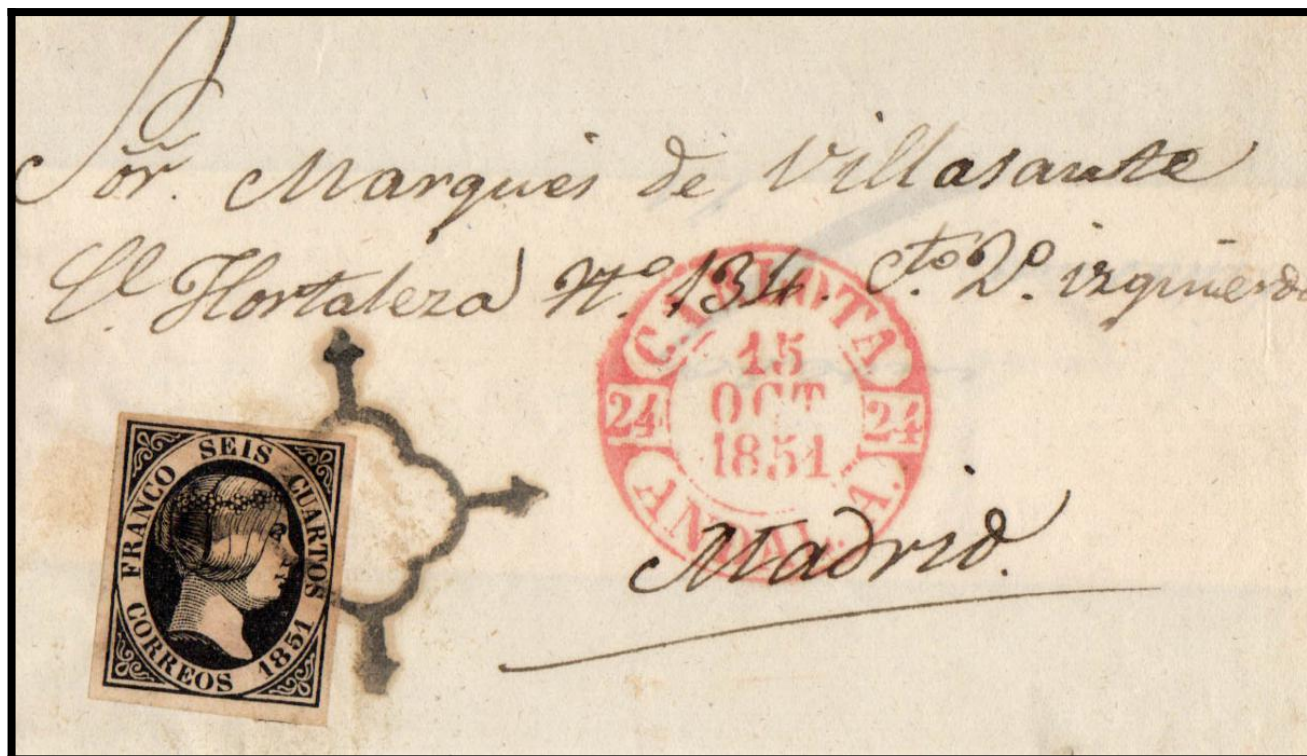 Sor. Marques de Villasante
Cl. Hortaleza Nº 134. Cto. 2º. izquierda
CARLOTA
24 15 24
OCT
1851
ANDAL. A.
Madrid.
FRANCO SEIS CUARTOS
CORREOS 1851